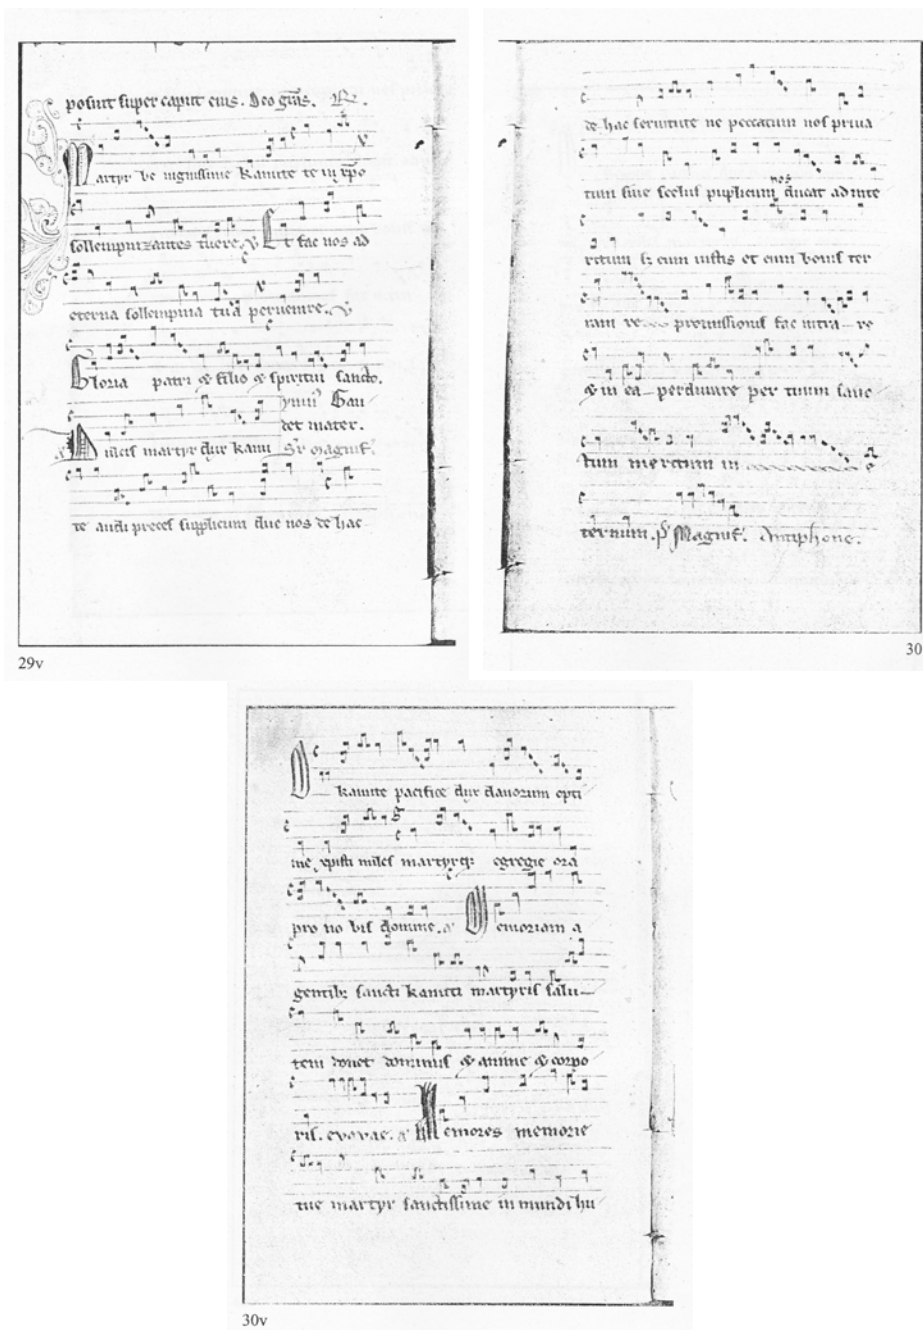 posuit super caput eius. Deo gr̄as. R.
Martyr be nignissime Kanute te in xp̄o
sollempnizantes tuere. V Et fac nos ad
eterna sollempnia tua peruenire. V
Gloria patri & filio & spiritui sancto.
ymnꝰ Gau
det mater.
Dulcis martyr dux Kanu Sr̄ Magnif.
te audi preces supplicum due nos de hac
29v
de hac seruitute ne peccatum nos priua
tum siue scelus puplicum nos ducat ad inte
ritum s; cum iustis et cum bonis ter
ram re promissionis fac intra re
& in ea perdurare per tuum sanc
tum meritum in e
ternum. ps Magnif. Antiphone.
30
Kanute pacifice dux danorum opti
me xpisti miles martyrq; egregie ora
pro no bis domine. a Memoriam a
gentib; sancti Kanuti martyris salu
tem donet dominus & anime & corpo
ris. evovae. a Memores memorie
tue martyr sanctissime in mundi hu
30v